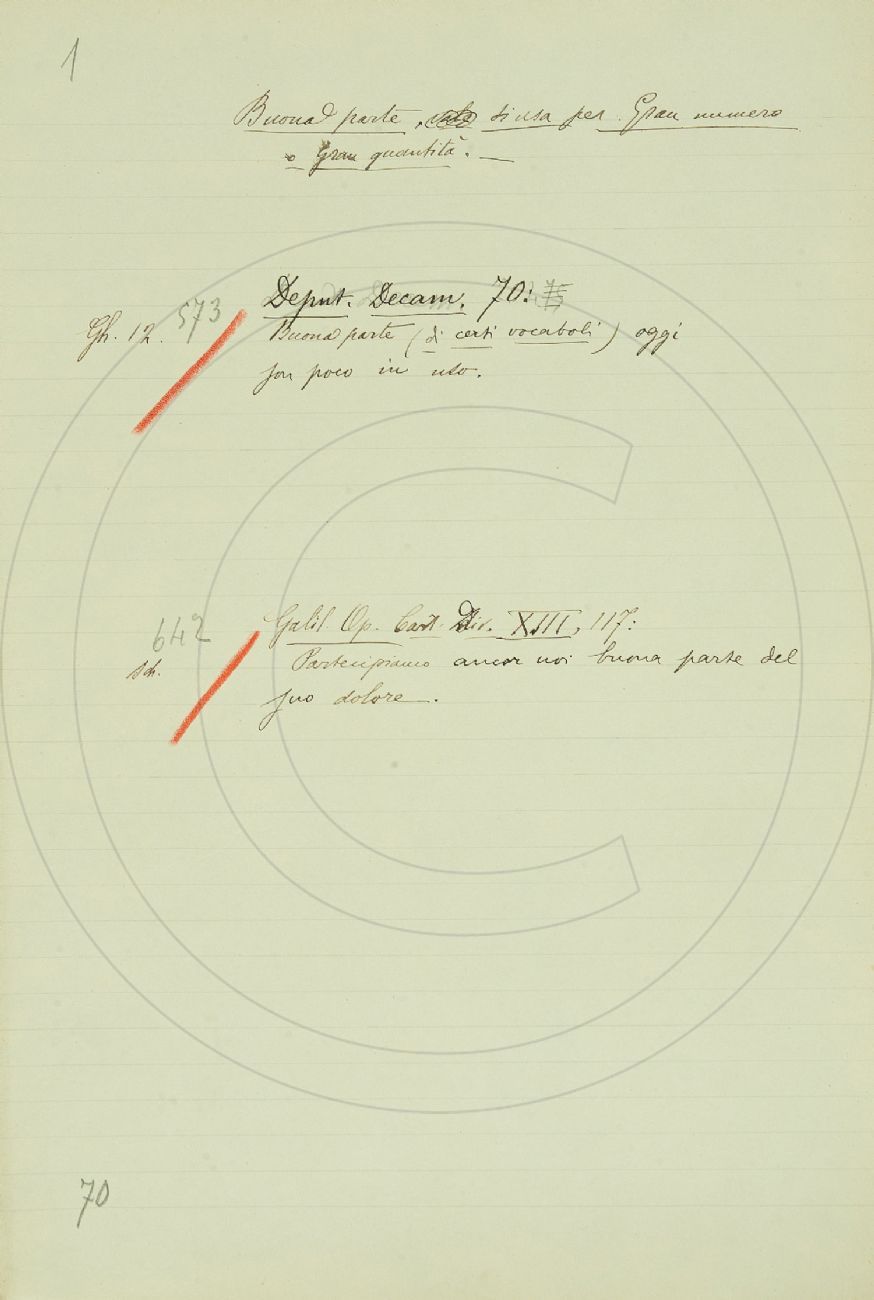 1
Buona parte, si usa per Gran numero
o Gran quantità. —
Deput. Decam. 70:
Gh. 12. 573 Buona parte (di certi vocaboli) oggi
son poco in uso.
642 Galil. Op. Cart. XIII, 117:
Sch. Partecipiamo ancor noi buona parte del
suo dolore.
70